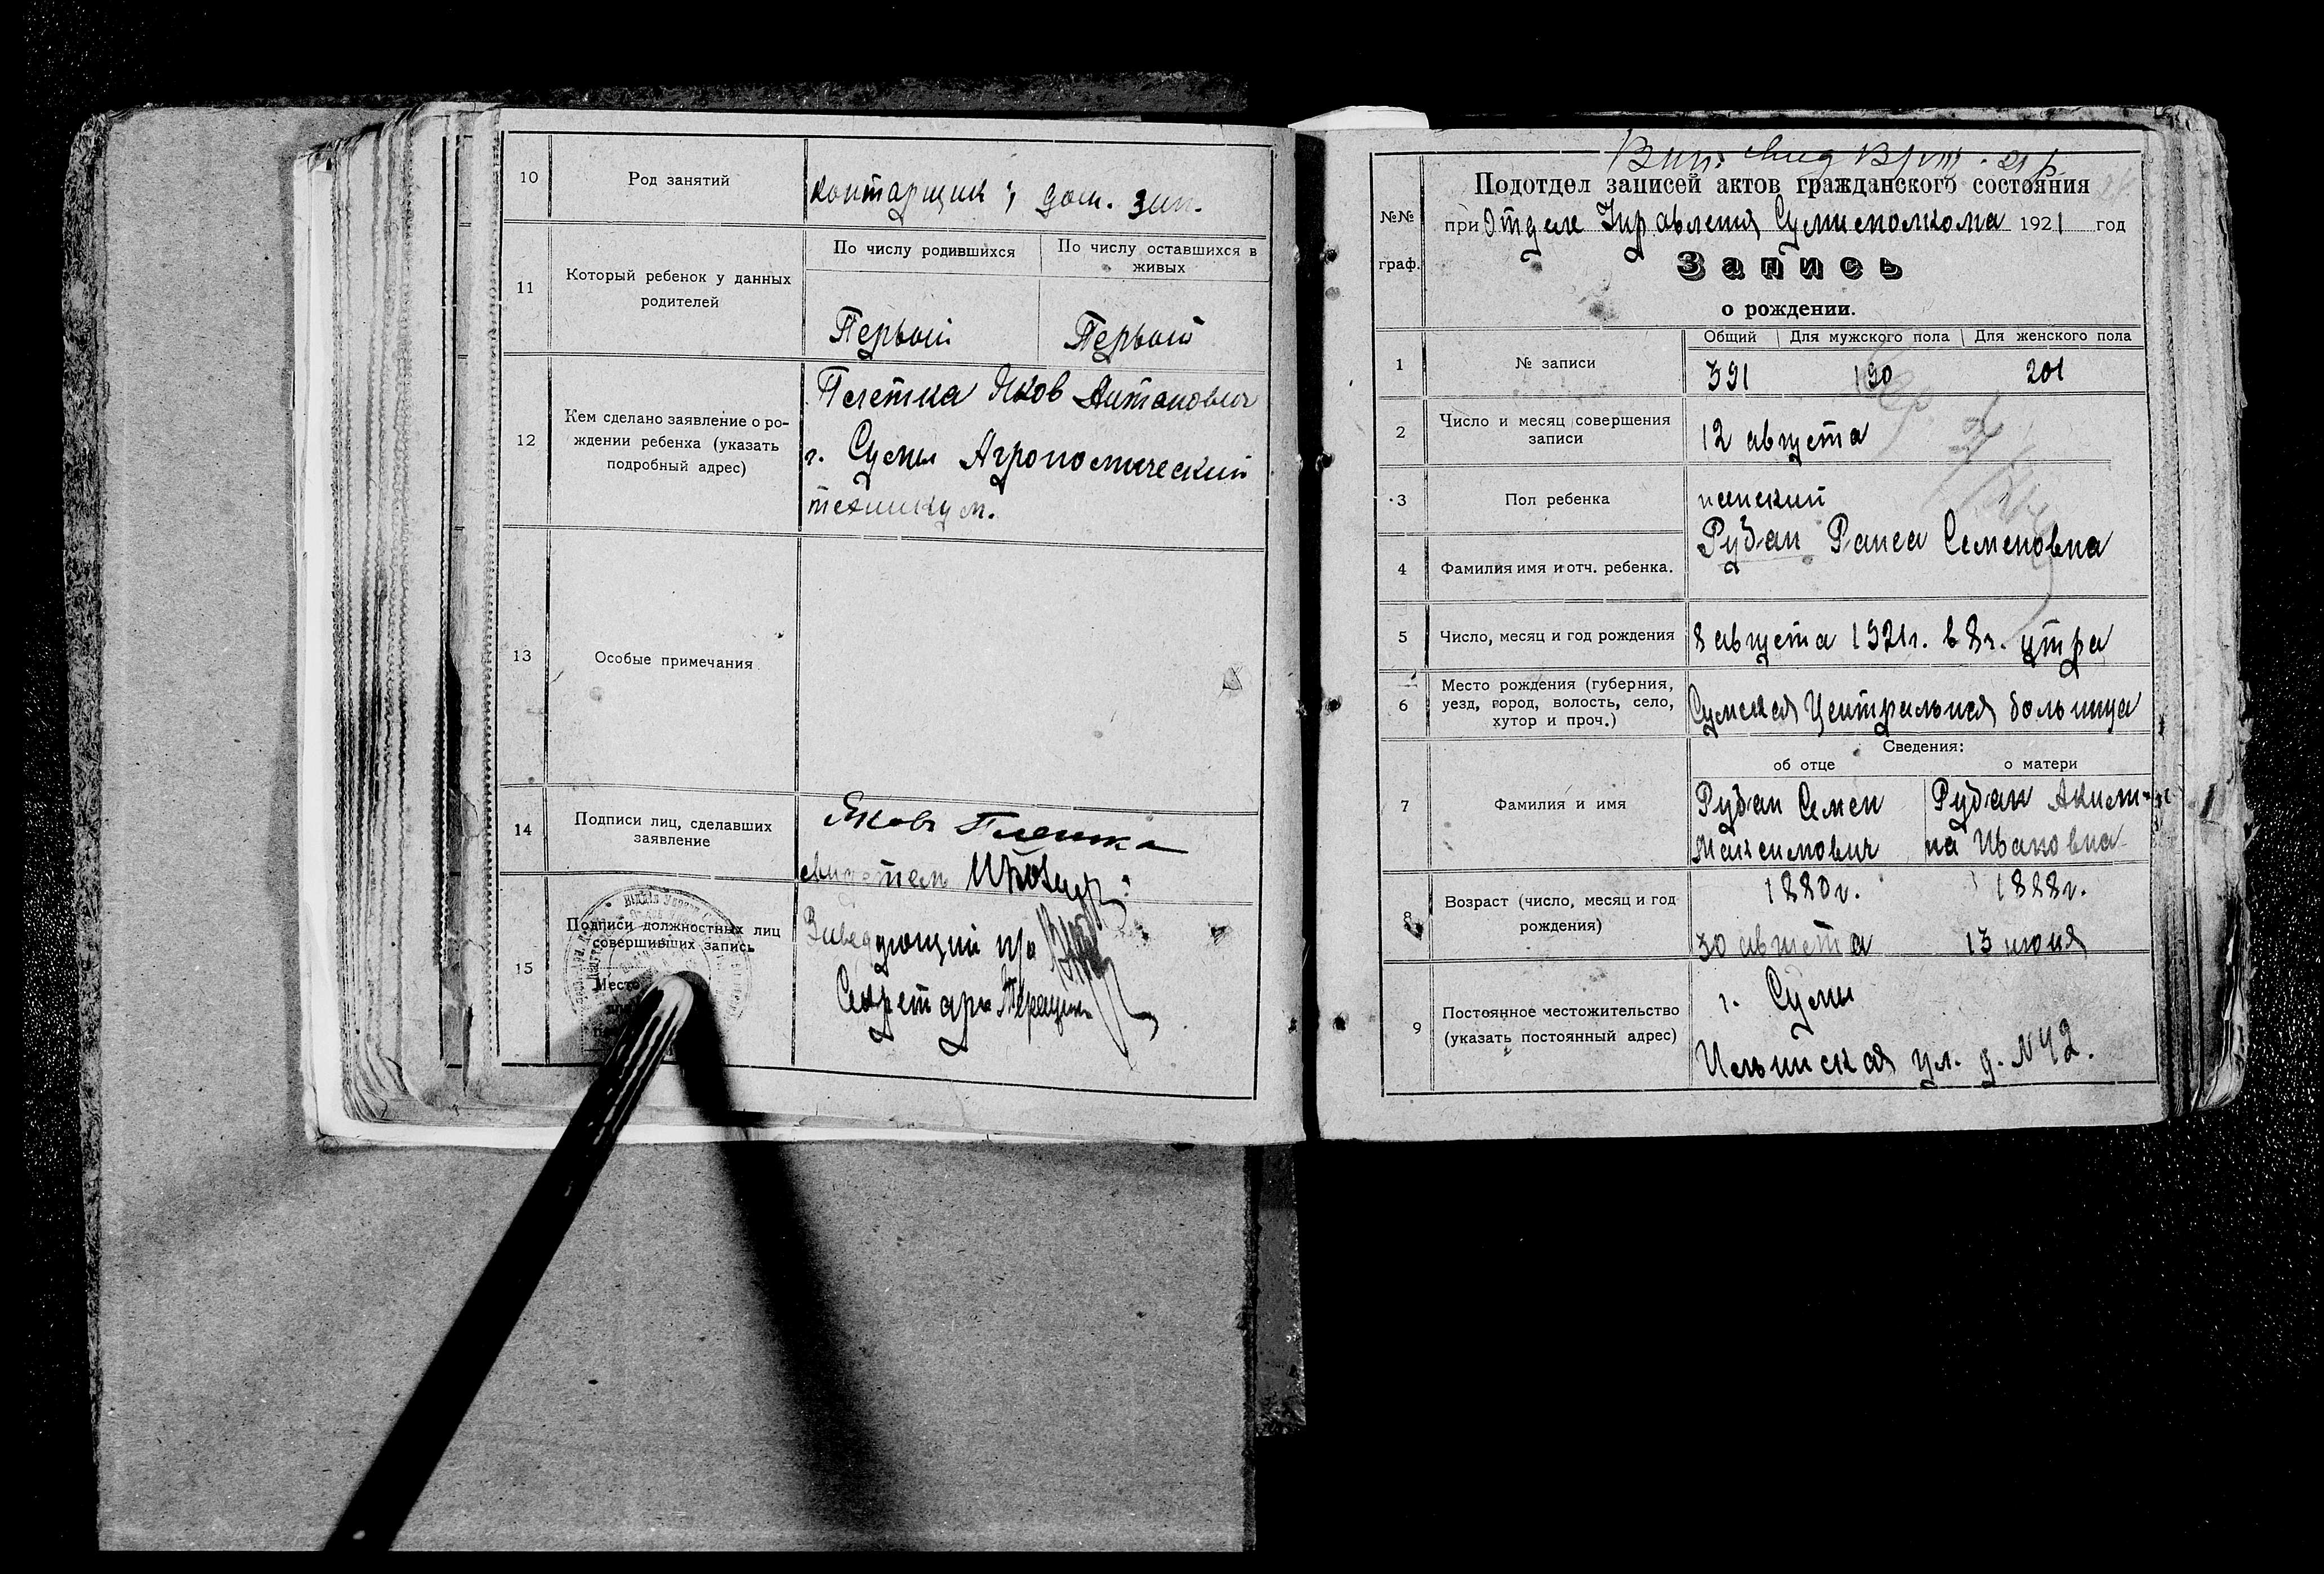 10
Род занятий
конторщик; дом. зан.
11
Который ребенок у данных
родителей
По числу родившихся
По числу оставшихся в
живых
Первый
Первый
12
Кем сделано заявление о ро-
ждении ребенка (указать
подробный адрес)
Плетка Яков Антонович
г. Сумы Агрономический
техникум.
13
Особые примечания
14
Подписи лиц, сделавших
заявление
Яков
свидетель
15
Подписи должностных лиц
совершивших запись
Место
Заведующий п/о
Секретарь
Подотдел записей актов гражданского состояния
№№
граф.
при Отделе Управления Сумисполкома 1921 год
Запись
о рождении.
1
№ записи
Общий
Для мужского пола
Для женского пола
391
190
201
2
Число и месяц совершения
записи
12 августа
3
Пол ребенка
женский
4
Фамилия имя и отч. ребенка.
Рубан Раиса Семеновна
5
Число, месяц и год рождения
8 августа 1921г. в 8ч. утра
6
Место рождения (губерния,
уезд, город, волость, село,
хутор и проч.)
Сумская Центральная больница
7
Фамилия и имя
Сведения:
об отце
о матери
Рубан Семен
Максимович
Рубан
на Ивановна
8
Возраст (число, месяц и год
рождения)
1880г.
30 августа
1888г.
13 июня
9
Постоянное местожительство
(указать постоянный адрес)
г. Сумы
Ильинская ул. д. №42.